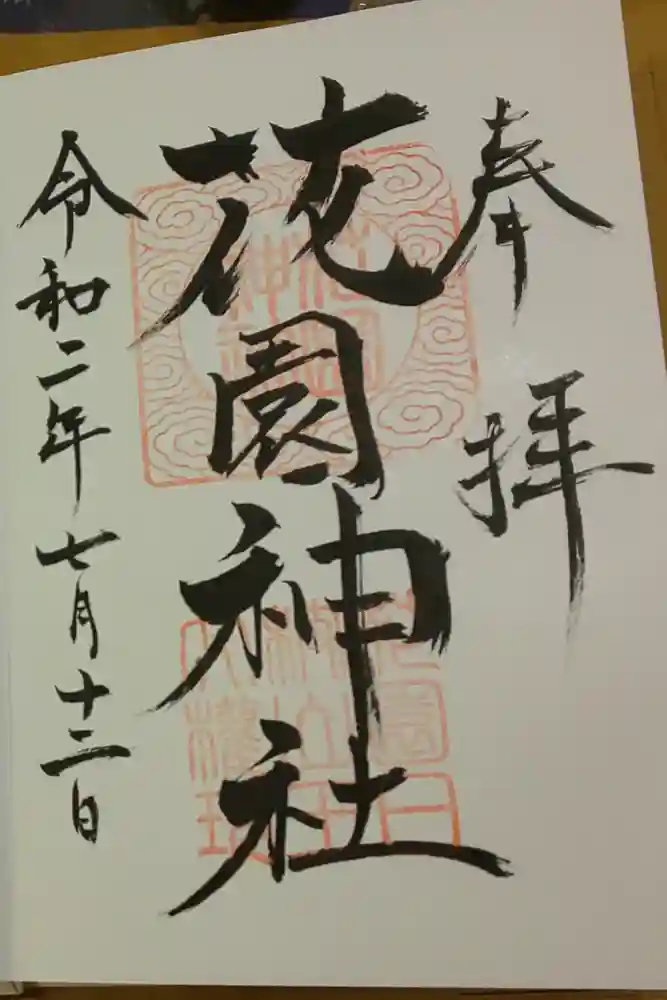 奉拝
花園神社
令和二年七月十二日